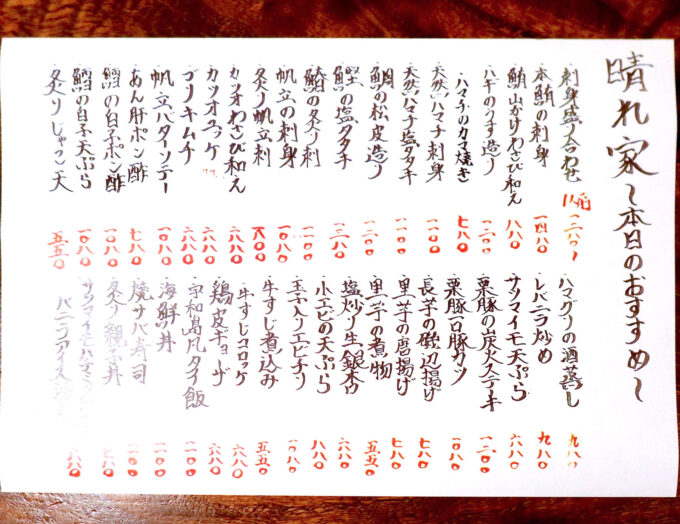 晴れ家〜本日のおすすめ〜
・刺身盛り合わせ
・本鮪の刺身 一四八〇
・鮪山かけわさび和え 八八〇
・ハギのうす造り 一二〇〇
・ハマチのカマ焼き 七八〇
・天然ハマチ刺身 一一〇〇
・天然ハマチ塩タタキ 一一〇〇
・鯛の松皮造り 一二〇〇
・鰹の塩タタキ 一三八〇
・鰆の炙り刺 一一〇〇
・帆立の刺身 一〇八〇
・炙り帆立刺
・カツオわさび和え 六八〇
・カツオユッケ 六八〇
・ゴリキムチ 六八〇
・帆立バターソテー 一〇八〇
・あん肝ポン酢 七八〇
・鱈の白子ポン酢 一〇八〇
・鱈の白子天ぷら 一〇八〇
・炙りじゃこ天 五五〇
・ハマグリの酒蒸し 九八〇
・レバニラ炒め 九八〇
・サツマイモ天ぷら 六八〇
・栗豚の炭火ステーキ 一二〇〇
・栗豚一口豚カツ 一〇八〇
・長芋の磯辺揚げ 七八〇
・里芋の唐揚げ 七八〇
・里芋の煮物 五五〇
・塩炒り生銀杏 六八〇
・小エビの天ぷら 八八〇
・玉子入りエビチリ 一〇八〇
・牛すじ煮込み 五五〇
・牛すじコロッケ 六八〇
・鶏皮ギョーザ 六八〇
・宇和島風タイ飯 一一〇〇
・海鮮丼 一一〇〇
・焼サバ寿司 一一〇〇
・炙り親子丼 七八〇
・サツマイモハチミツ
バニラアイス 六八〇